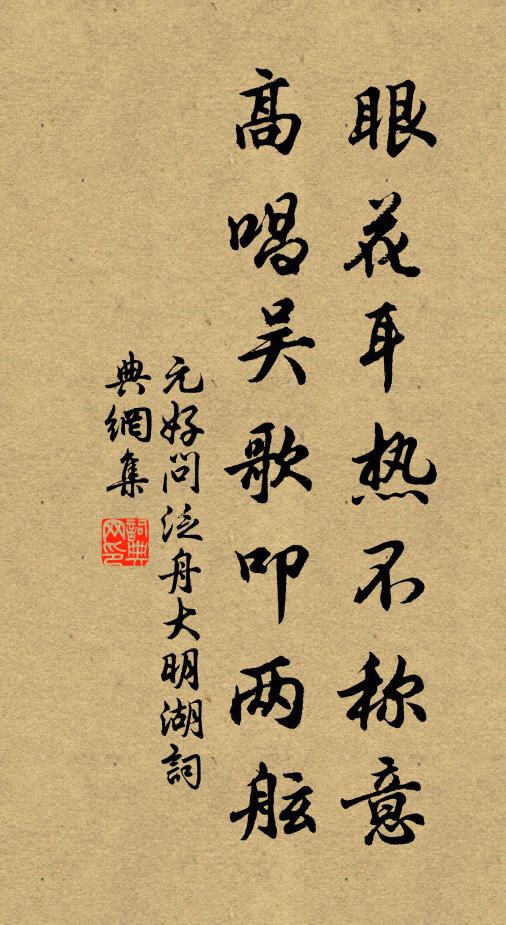 眼花耳热不称意
高唱吴歌叩两舷
元好问泛舟大明湖詞
典網集
詞典
网印